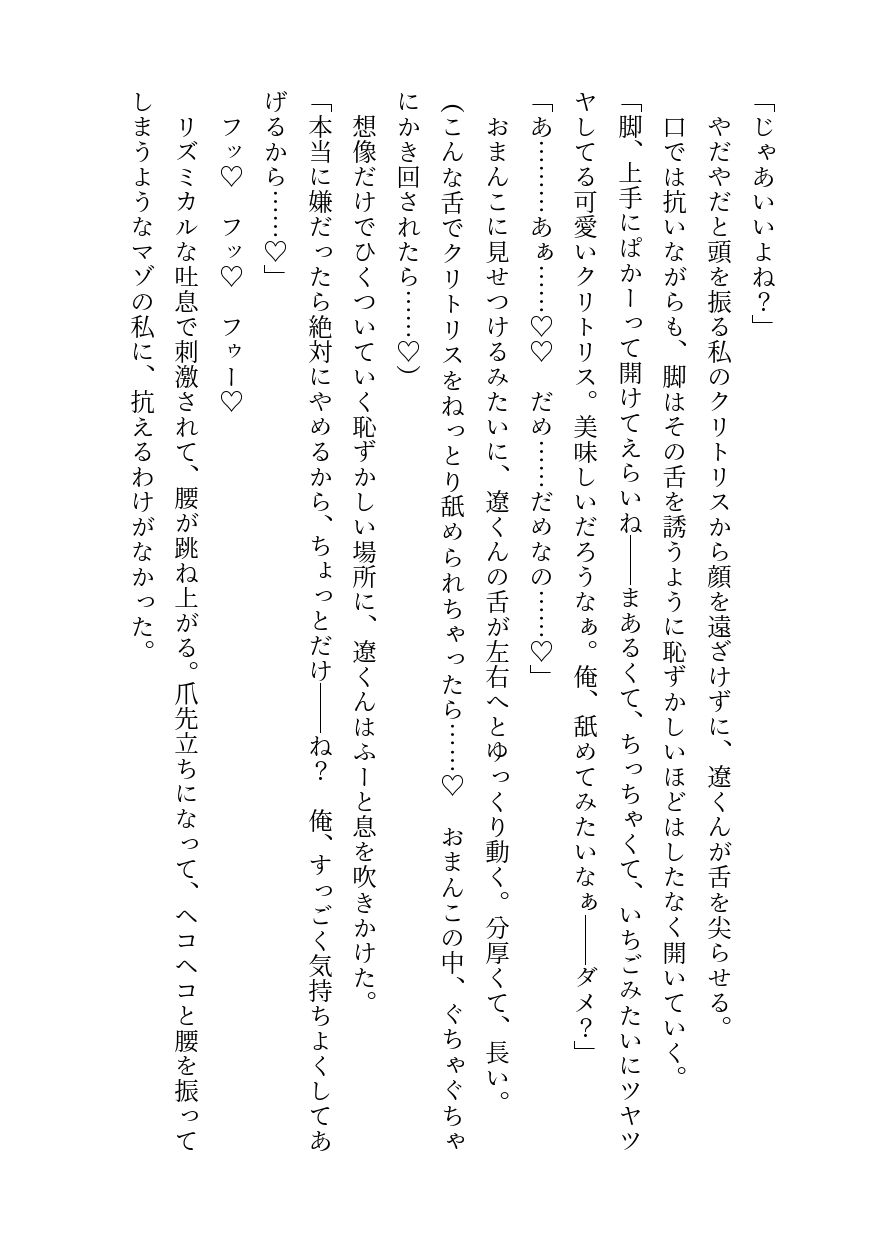 「じゃあいいよね？」
　やだやだと頭を振る私のクリトリスから顔を遠ざけずに、遼くんが舌を尖らせる。
　口では抗いながらも、脚はその舌を誘うように恥ずかしいほどはしたなく開いていく。
「脚、上手にぱかーって開けてえらいね――まあるくて、ちっちゃくて、いちごみたいにツヤツ
ヤしてる可愛いクリトリス。美味しいだろうなぁ。俺、舐めてみたいなぁ――ダメ？」
「あ………あぁ……♡♡　だめ……だめなの……♡」
　おまんこに見せつけるみたいに、遼くんの舌が左右へとゆっくり動く。分厚くて、長い。
（こんな舌でクリトリスをねっとり舐められちゃったら……♡　おまんこの中、ぐちゃぐちゃ
にかき回されたら……♡）
　想像だけでひくついていく恥ずかしい場所に、遼くんはふーと息を吹きかけた。
「本当に嫌だったら絶対にやめるから、ちょっとだけ――ね？　俺、すっごく気持ちよくしてあ
げるから……♡」
　フッ♡　フッ♡　フゥー♡
　リズミカルな吐息で刺激されて、腰が跳ね上がる。爪先立ちになって、ヘコヘコと腰を振って
しまうようなマゾの私に、抗えるわけがなかった。